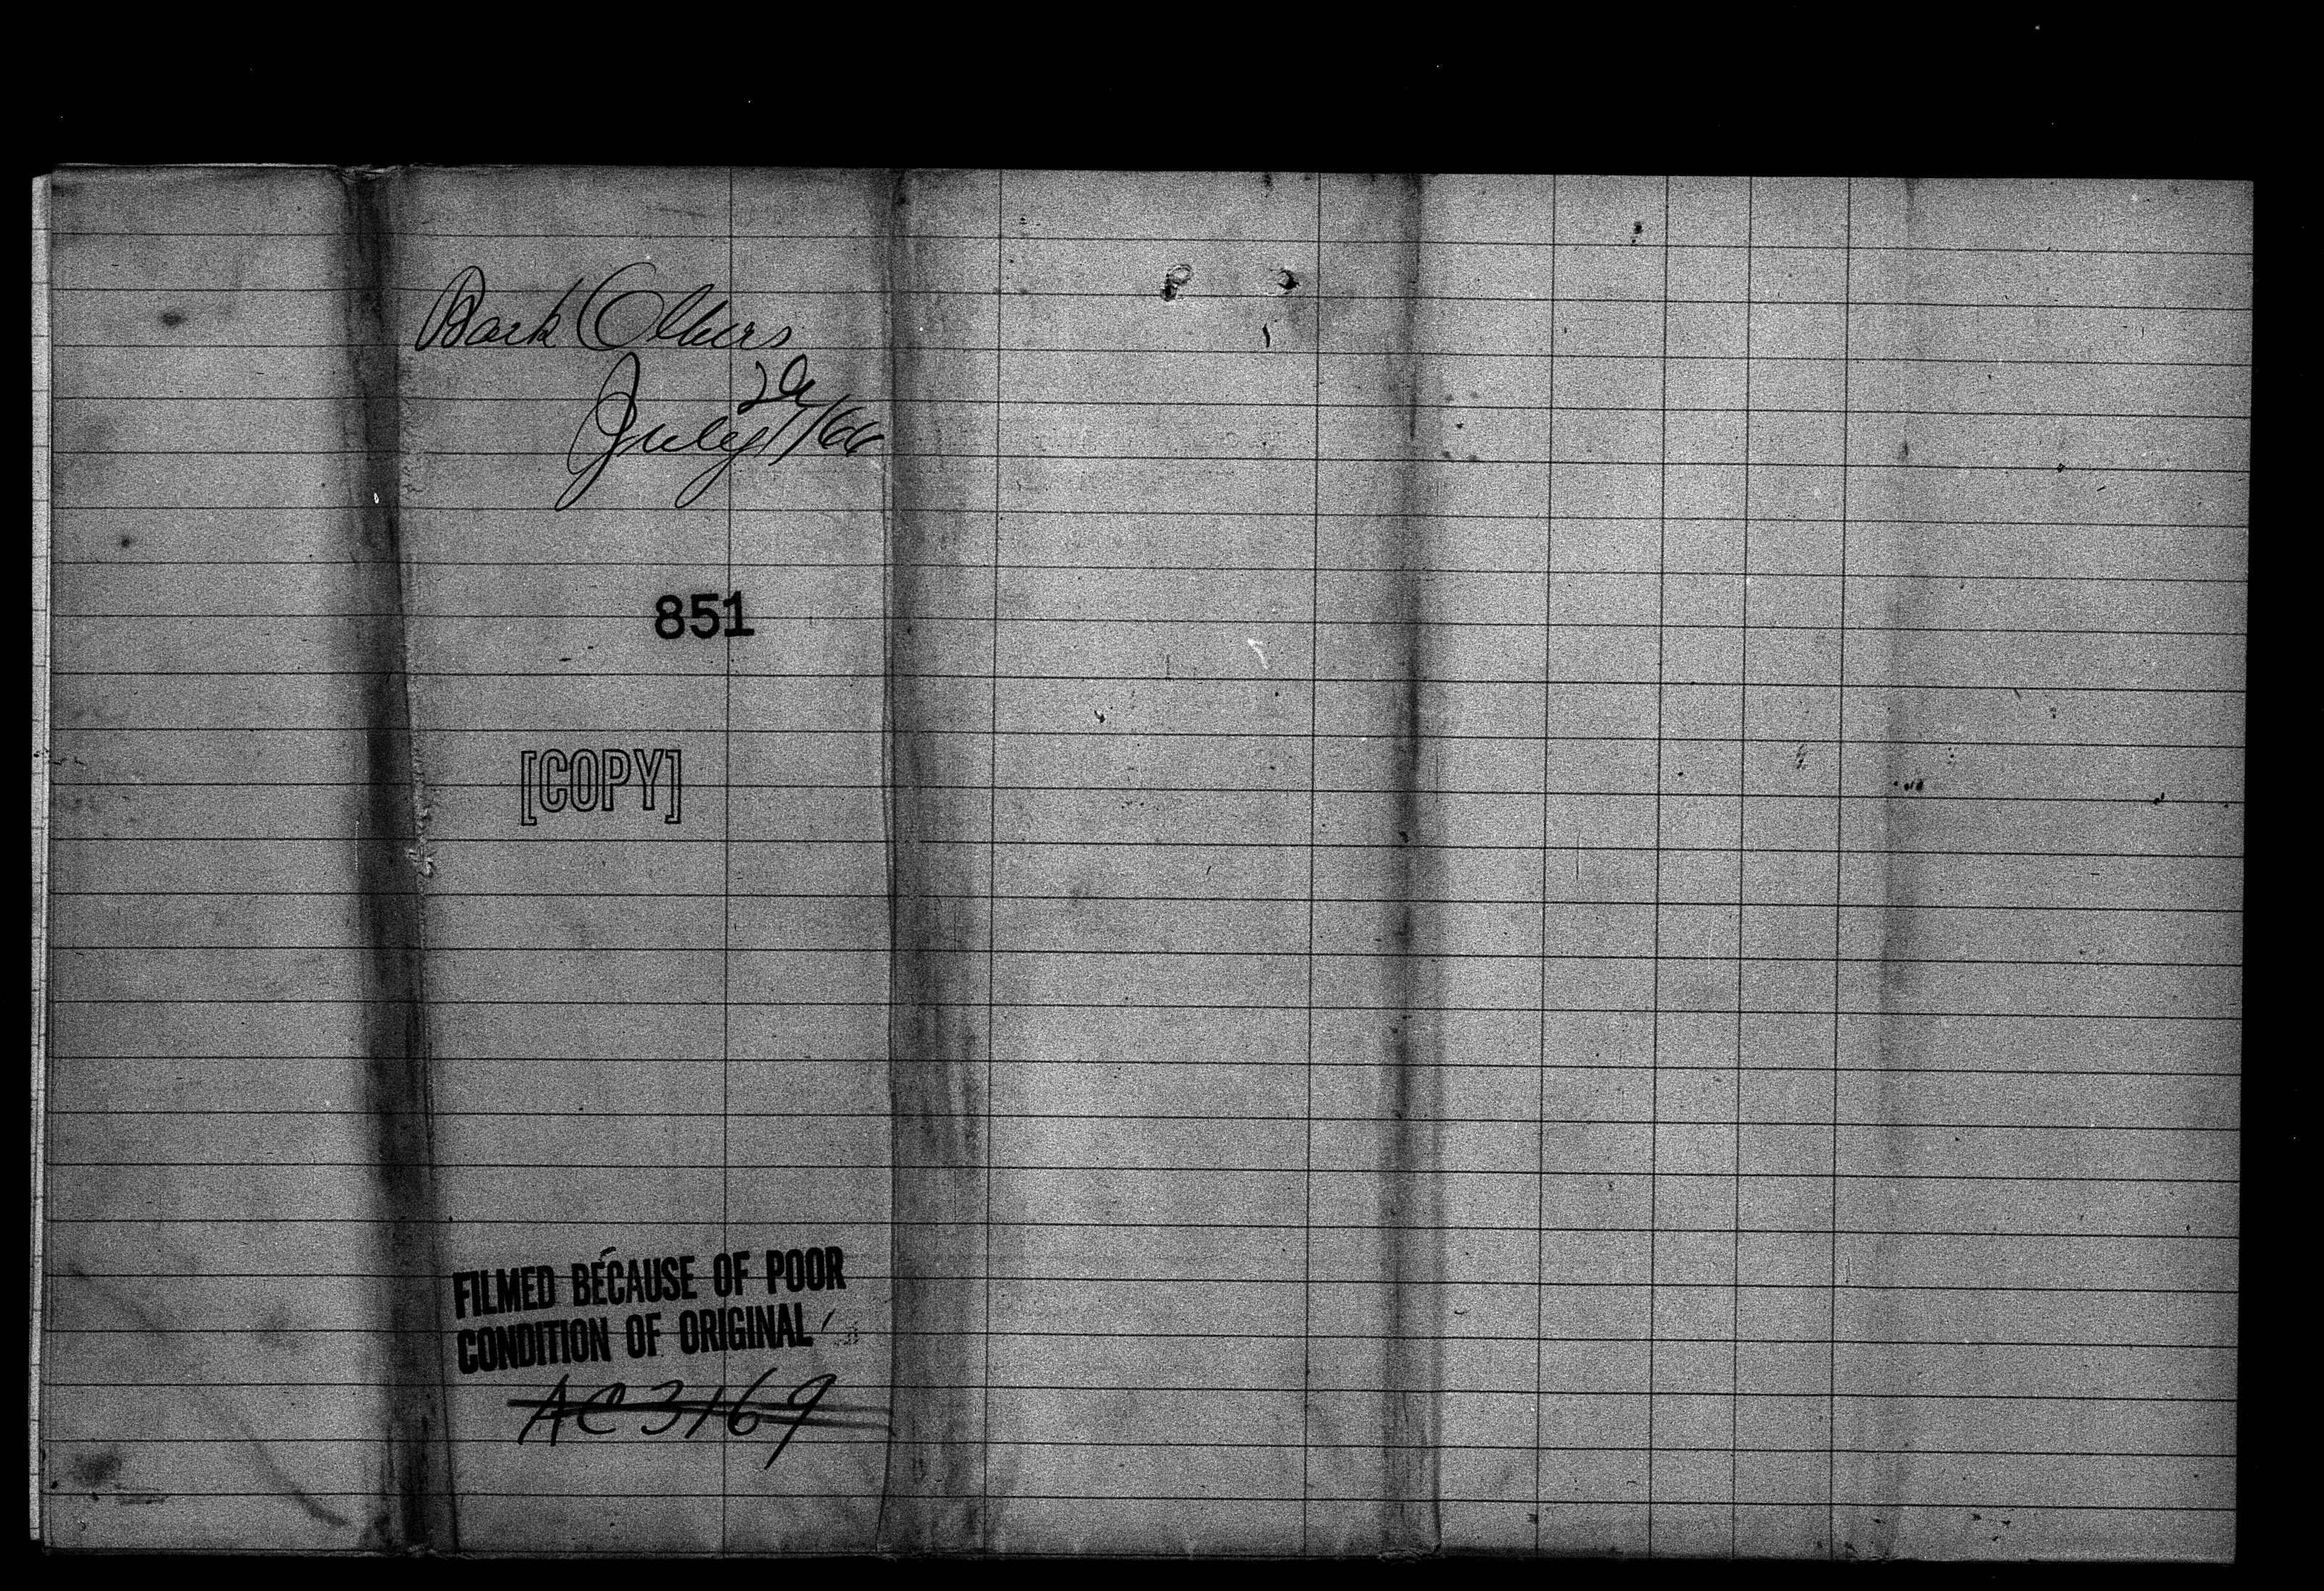 Bark Olbers
July 2d/66
851
[COPY]
FILMED BECAUSE OF POOR
CONDITION OF ORIGINAL
AC 3169